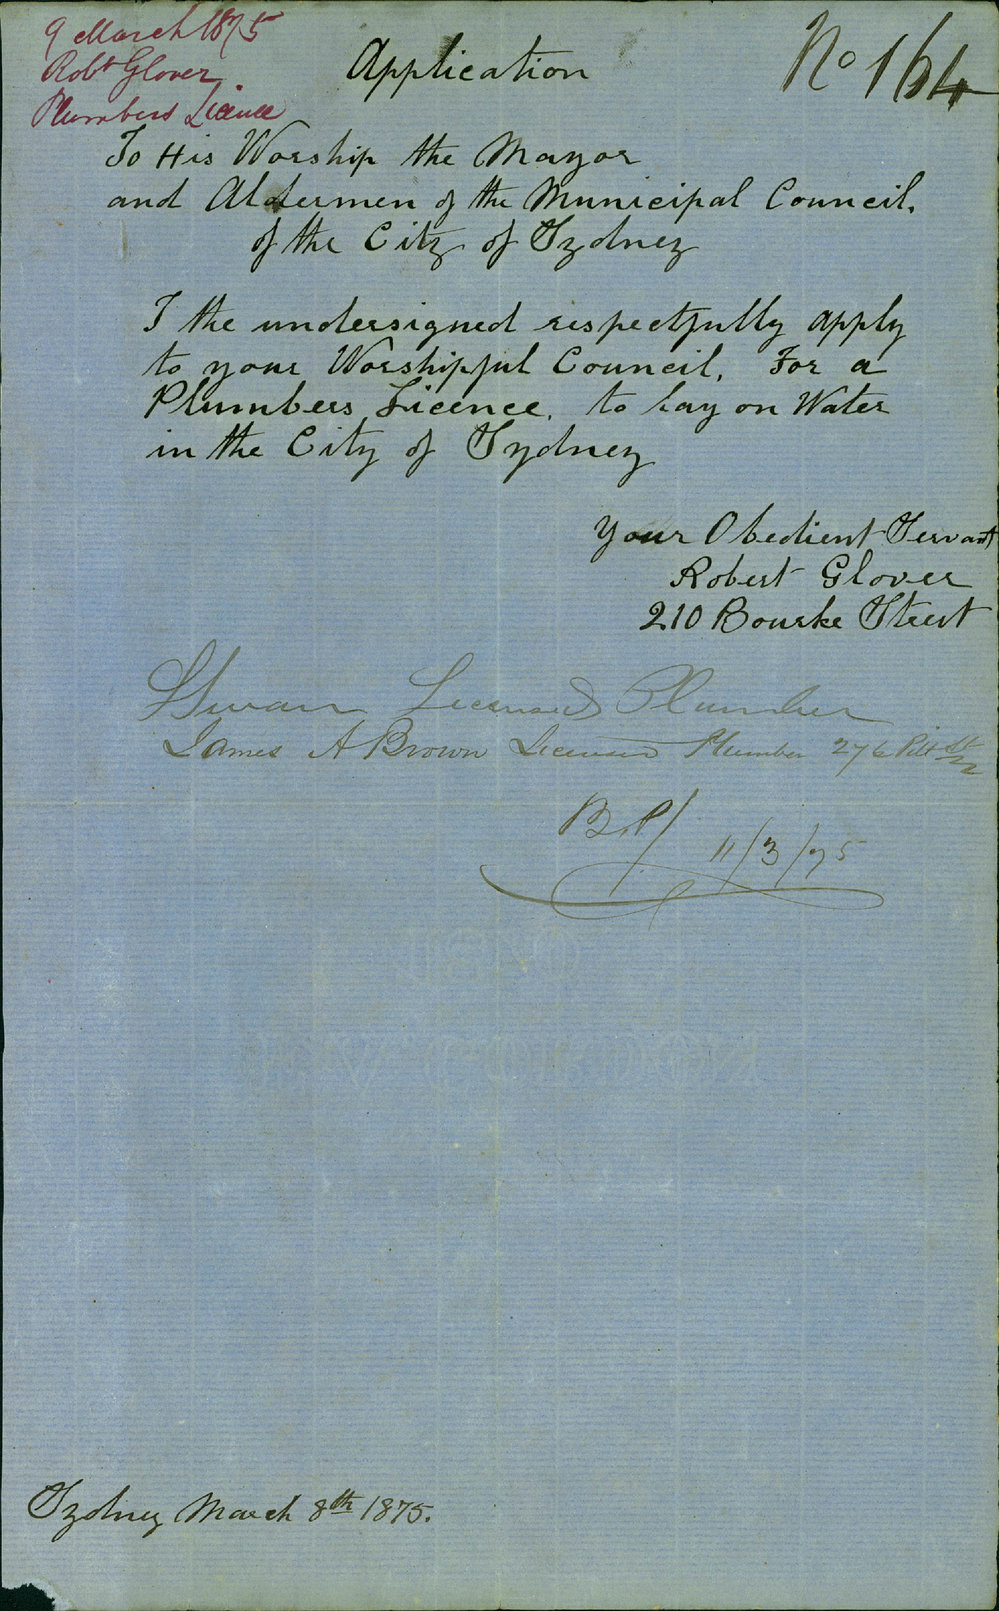 9 March 1875
Robt Glover
Plumbers Licence
Application
No 164
To His Worship the Mayor
and Aldermen of the Municipal Council.
of the City of Sydney
I the undersigned respectfully apply
to your Worshipful Council. For a
Plumbers Licence. to lay on Water
in the City of Sydney
Your Obedient Servant
Robert Glover
210 Bourke Street
Swan Licensed Plumber
James A Brown Licensed Plumber 276 Pitt St
11/3/75
Sydney March 8th 1875.